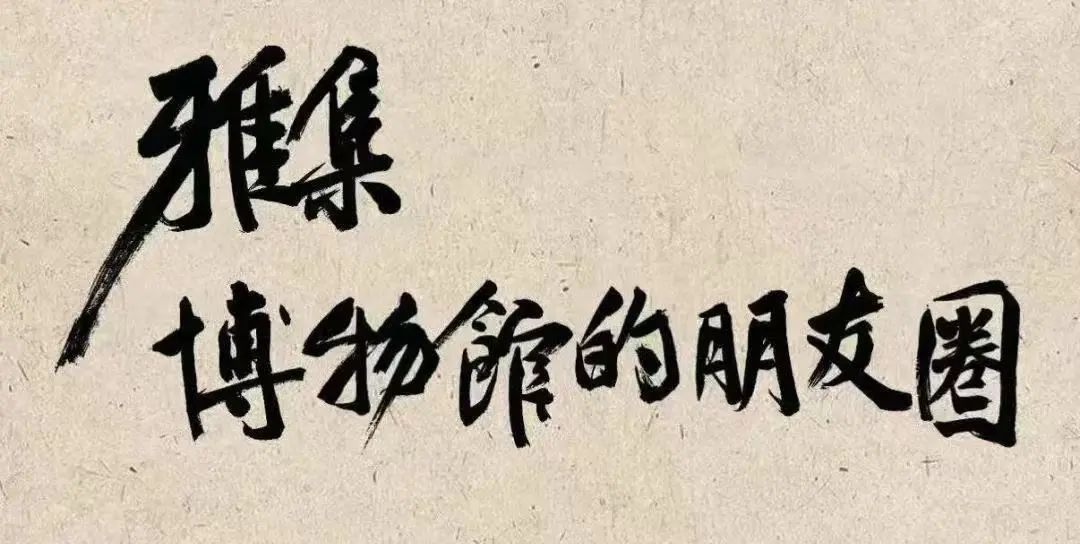 雅集
博物館的朋友圈